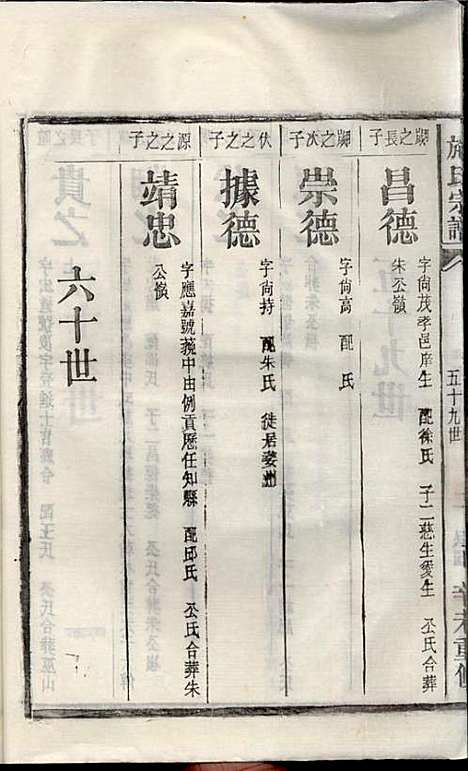 施氏宗譜
五十九世
朱重修
勰之長子
昌德
字尙茂孝邑庠生 配徐氏 子二慈生愛生 仝氏合葬
朱公嶺
勰之次子
崇德
字尙高 配 氏
伙之之子
據德
字尙持 配朱氏 徙居婺州
源之之子
靖忠
字應嘉號菀中由例貢歷任知縣 配邱氏 仝氏合葬朱
公嶺
六十世